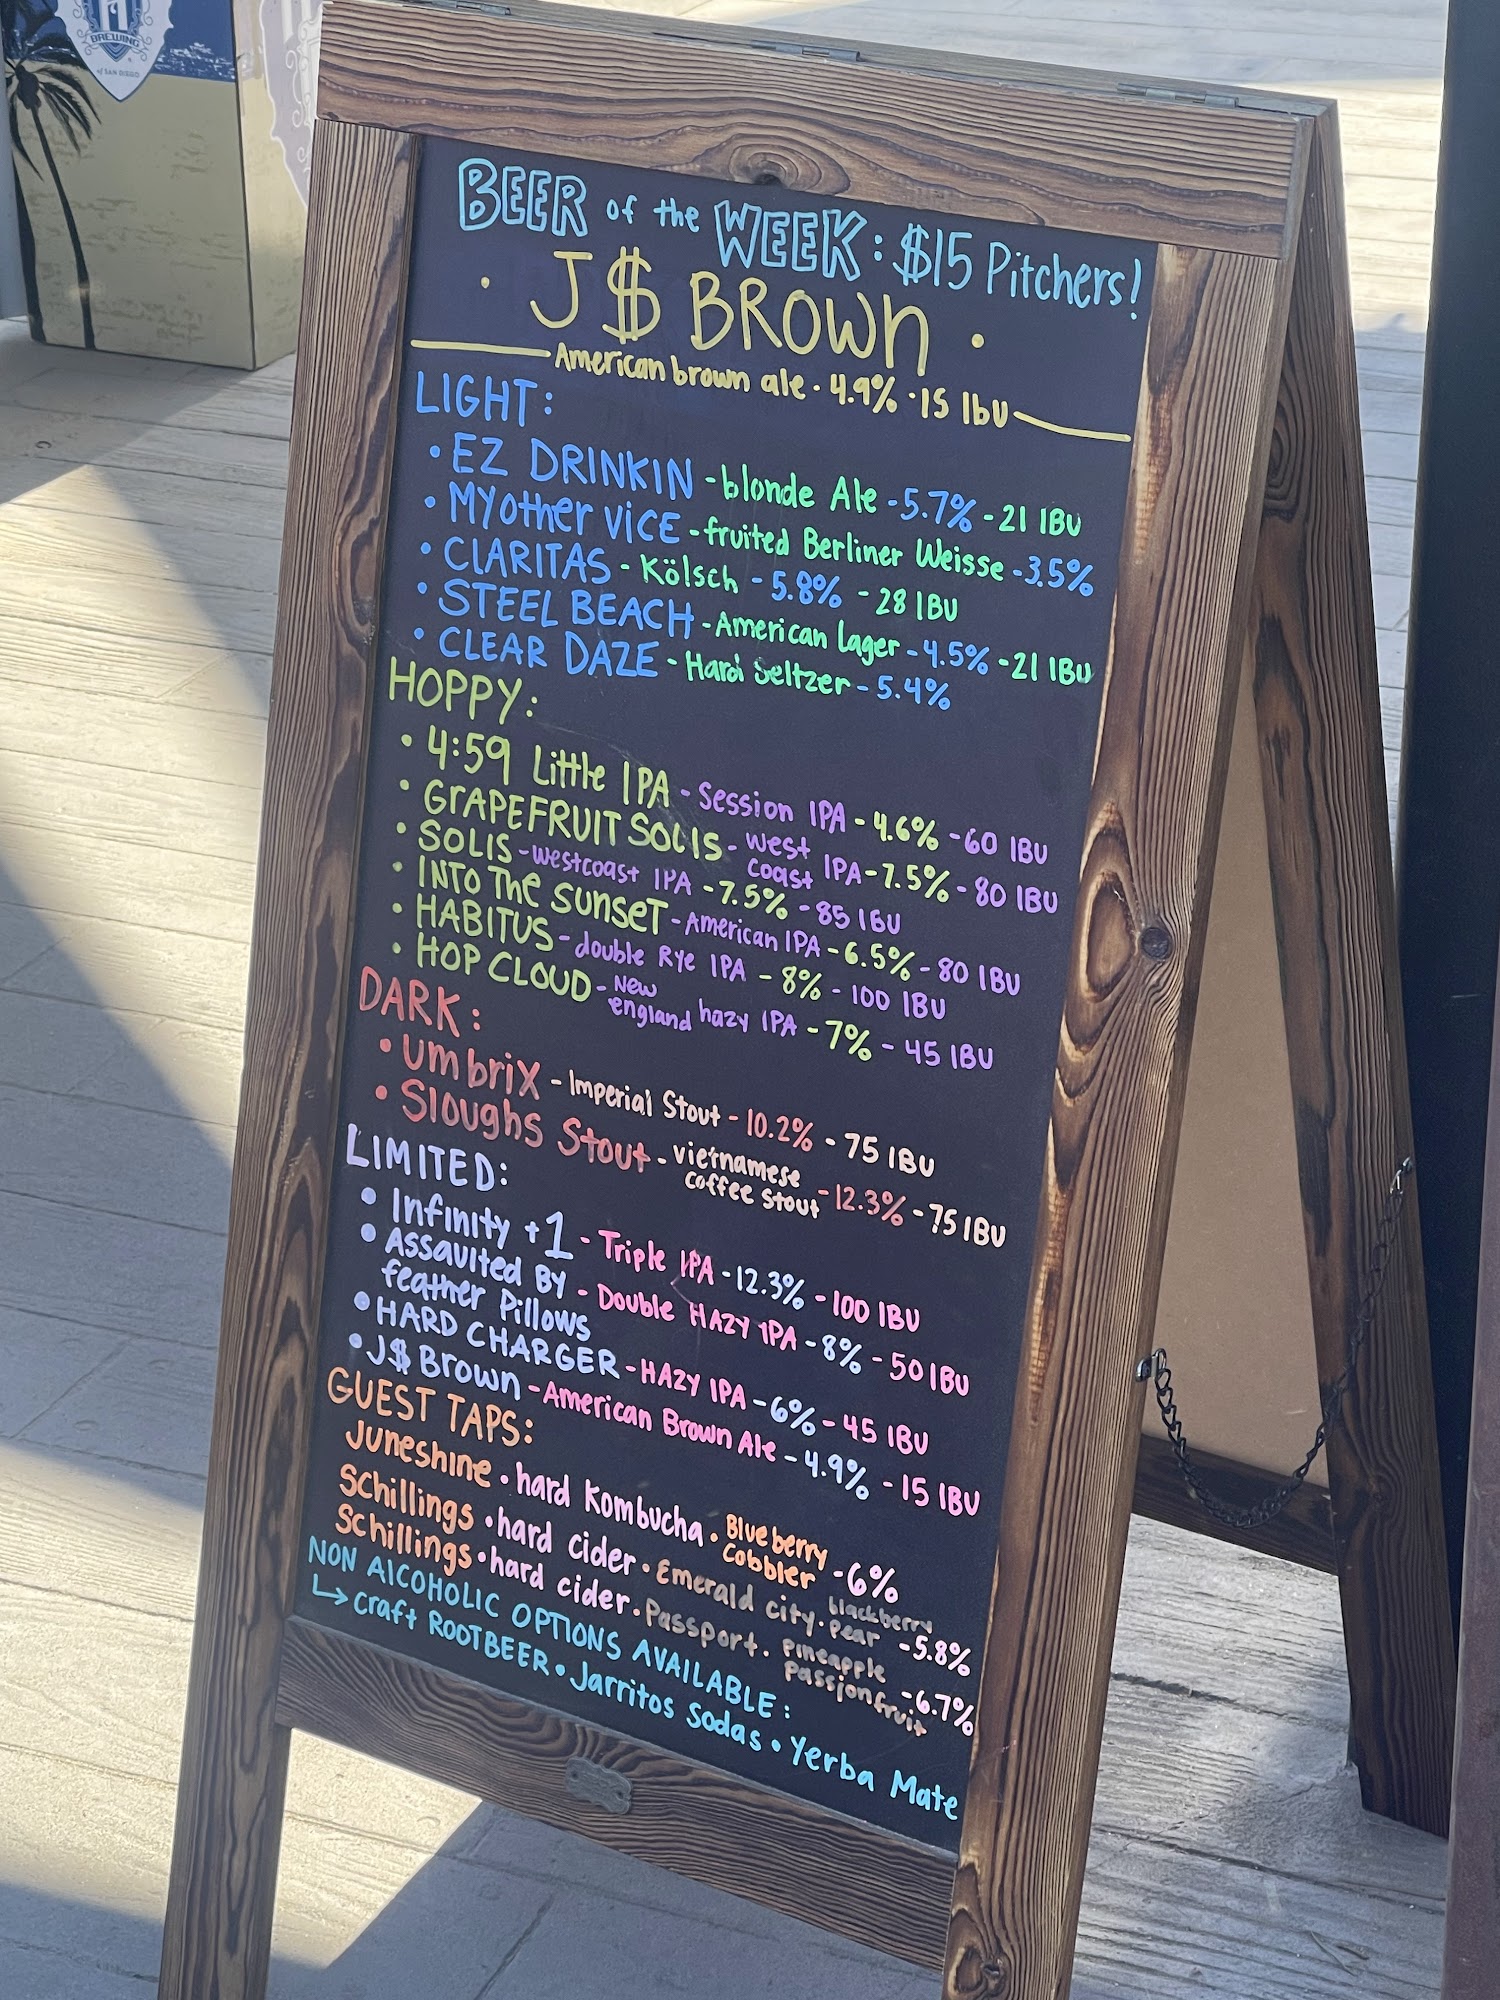 BREWING
of SAN DIEGO
BEER of the WEEK: $15 Pitchers!
· J$ BROWN ·
American brown ale · 4.9% · 15 IbU
LIGHT:
• EZ DRINKIN - blonde Ale - 5.7% - 21 IBU
• MY other VICE - fruited Berliner Weisse - 3.5%
• CLARITAS - Kölsch - 5.8% - 28 IBU
• STEEL BEACH - American Lager - 4.5% - 21 IBU
• CLEAR DAZE - Hard Seltzer - 5.4%
HOPPY:
• 4:59 Little IPA - Session IPA - 4.6% - 60 IBU
• GrAPEFRUIT SOLIS - West Coast IPA - 7.5% - 80 IBU
• SOLIS - westcoast IPA - 7.5% - 85 IBU
• INTO The SunSET - American IPA - 6.5% - 80 IBU
• HABITUS - double Rye IPA - 8% - 100 IBU
• HOP CLOUD - New england hazy IPA - 7% - 45 IBU
DARK:
• umbrix - Imperial Stout - 10.2% - 75 IBU
• Sloughs Stout - vietnamese coffee stout - 12.3% - 75 IBU
LIMITED:
• Infinity +1 - Triple IPA - 12.3% - 100 IBU
• Assaulted BY feather Pillows - Double HAZY IPA - 8% - 50 IBU
• HARD CHARGER - HAZY IPA - 6% - 45 IBU
• J$ Brown - American Brown Ale - 4.9% - 15 IBU
GUEST TAPS:
Juneshine · hard Kombucha · Blueberry Cobbler - 6%
Schillings · hard cider · Emerald city · blackberry pear - 5.8%
Schillings · hard cider · Passport · pineapple passionfruit - 6.7%
NON AlCOHOLIC OPTIONS AVAILABLE:
↳ craft ROOTBEER • Jarritos Sodas • Yerba Mate